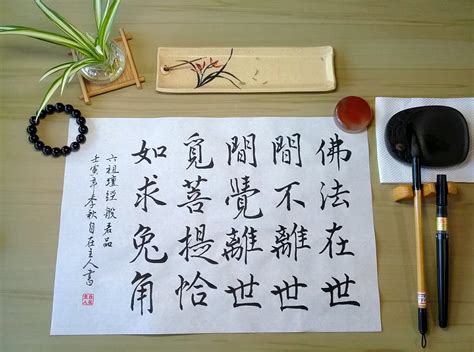 佛法在世
間不離世
間覺離世
覓菩提恰
如求兔角
六祖壇經般若品
壬寅年季秋自在主人書